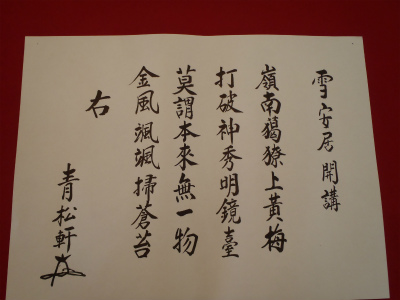 雪安居開講
嶺南獦獠上黃梅
打破神秀明鏡臺
莫謂本來無一物
金風颯颯掃蒼苔
右
青松軒